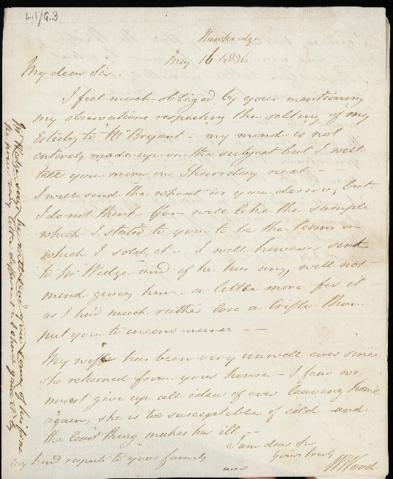 L.1/G.3
May 16 1836
My dear Sir.
I feel much obliged by your mentioning
my observations respecting the selling of my
to Mr Bryant - my mind is not
entirely made up on the subject but I will
tell you more on Thursday next -
I will send the wheat as you desire, but
I do not think you will like the sample
which I stated to you to be the terms on
which I sold it. I will however send
to Mr Wedge and if he has any will not
mind giving him a little more for it
as I had much rather lose a trifle than
put you to inconvenience --
My wife has been very unwell ever since
she returned from your house - I fear we
must give up all idea of ever leaving home
again, she is so susceptible of cold and
the least thing makes her ill --
I am dear Sir
Yours truly
my kind respects to your family
Wood
Mr Wedge says he will send you